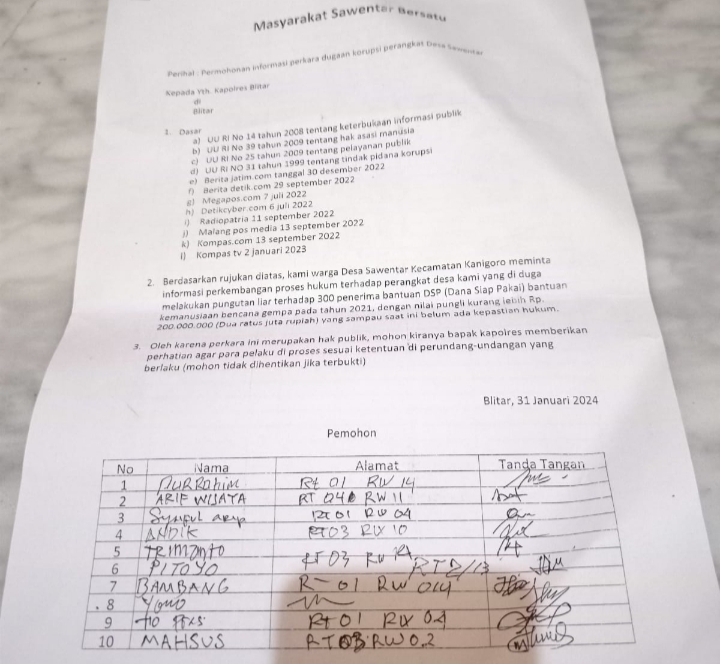 Masyarakat Sawentar Bersatu
Perihal : Permohonan informasi perkara dugaan korupsi perangkat Desa Sawentar
Kepada Yth. Kapolres Blitar
di
Blitar
1. Dasar
a) UU RI No 14 tahun 2008 tentang keterbukaan informasi publik
b) UU RI No 39 tahun 2009 tentang hak asasi manusia
c) UU RI No 25 tahun 2009 tentang pelayanan publik
d) UU RI NO 31 tahun 1999 tentang tindak pidana korupsi
e) Berita jatim.com tanggal 30 desember 2022
f) Berita detik.com 29 september 2022
g) Megapos.com 7 juli 2022
h) Detikcyber.com 6 juli 2022
i) Radiopatria 11 september 2022
j) Malang pos media 13 september 2022
k) Kompas.com 13 september 2022
l) Kompas tv 2 januari 2023
2. Berdasarkan rujukan diatas, kami warga Desa Sawentar Kecamatan Kanigoro meminta
informasi perkembangan proses hukum terhadap perangkat desa kami yang di duga
melakukan pungutan liar terhadap 300 penerima bantuan DSP (Dana Siap Pakai) bantuan
kemanusiaan bencana gempa pada tahun 2021, dengan nilai pungli kurang lebih Rp.
200.000.000 (Dua ratus juta rupiah) yang sampau saat ini belum ada kepastian hukum.
3. Oleh karena perkara ini merupakan hak publik, mohon kiranya bapak kapolres memberikan
perhatian agar para pelaku di proses sesuai ketentuan di perundang-undangan yang
berlaku (mohon tidak dihentikan jika terbukti)
Blitar, 31 Januari 2024
Pemohon
No Nama Alamat Tanda Tangan
1 NURROHIM Rt 01 RW 14
2 ARIF WIJAYA RT 04 RW 11
3 Rt 01 RW 04
4 ANDIK RT 03 RW 10
5 TRIMONTO RT 03 RW
6 PITOYO RT 2/13
7 BAMBANG R 01 RW 04
8 YONO
9 RT 01 RW 04
10 MAHSUS RT 03 RW 0.2